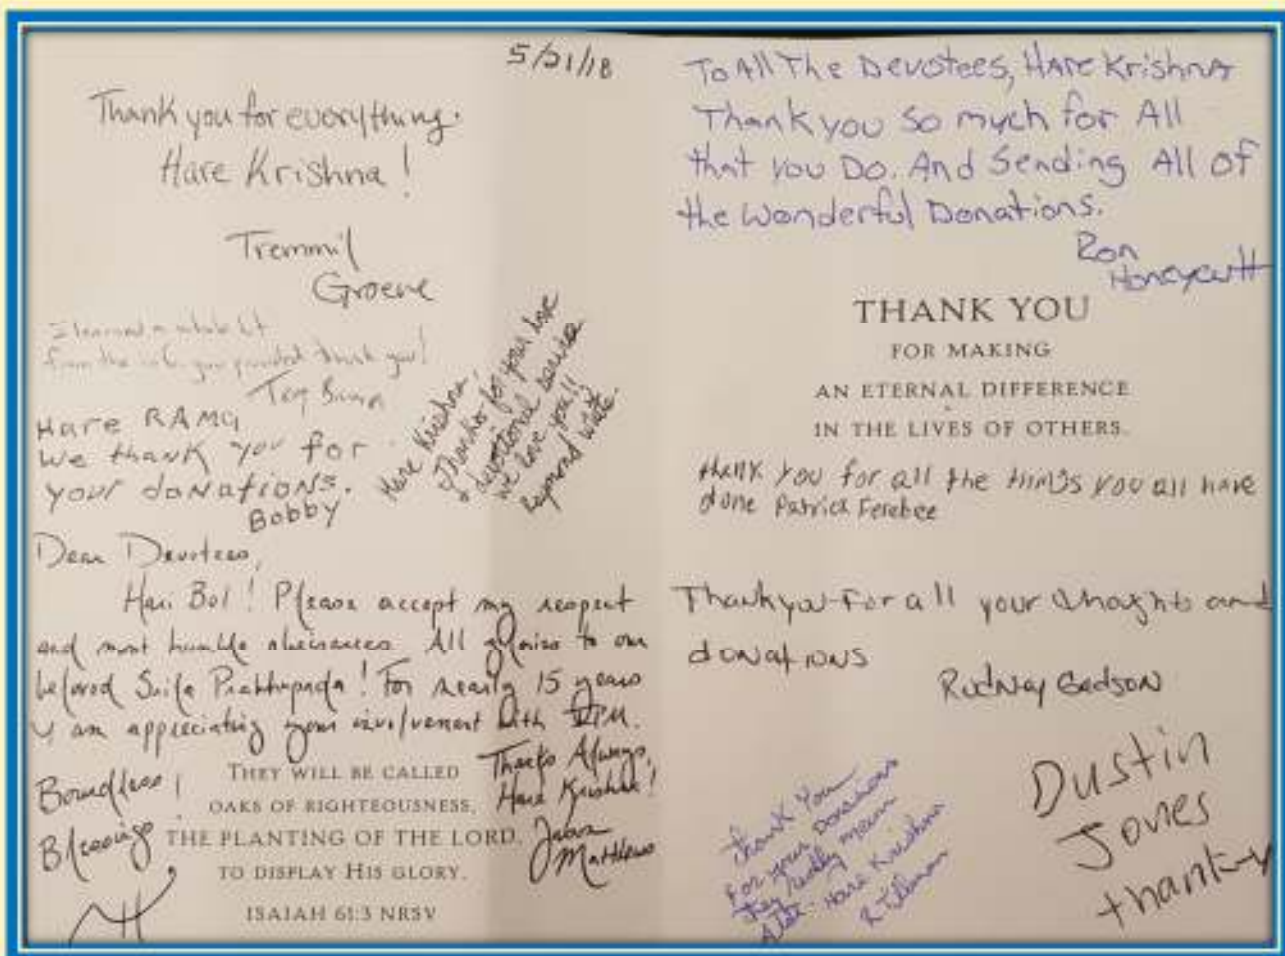 5/21/18
Thank you for everything.
Hare Krishna!
Tremmil
Groene
I learned a whole lot
from the info you provided thank you!
Hare RAMA
We thank you for
your donations.
Bobby
Hare Krishna,
Thanks for your love
& devotional service
we love you!!
Raymond White
Dear Devotees,
Hari Bol! Please accept my respect
and most humble obeisances. All glories to our
beloved Srila Prabhupada! For nearly 15 years
I am appreciating your involvement with IPM.
Boundless
Blessings!
Thanks Always,
Hare Krishna!
Matthews
THEY WILL BE CALLED
OAKS OF RIGHTEOUSNESS,
THE PLANTING OF THE LORD,
TO DISPLAY HIS GLORY.
ISAIAH 61:3 NRSV
To All The Devotees, Hare Krishna
Thank you so much for All
that you Do. And Sending All of
the Wonderful Donations.
Ron
Honeycutt
THANK YOU
FOR MAKING
AN ETERNAL DIFFERENCE
IN THE LIVES OF OTHERS.
thank you for all the things you all have
done Patrick Ferebee
Thank you for all your thoughts and
donations
Rodney Gadson
thank You
For your Donations
they really mean
Alot. Hare Krishna
Dustin
Jones
thank-y